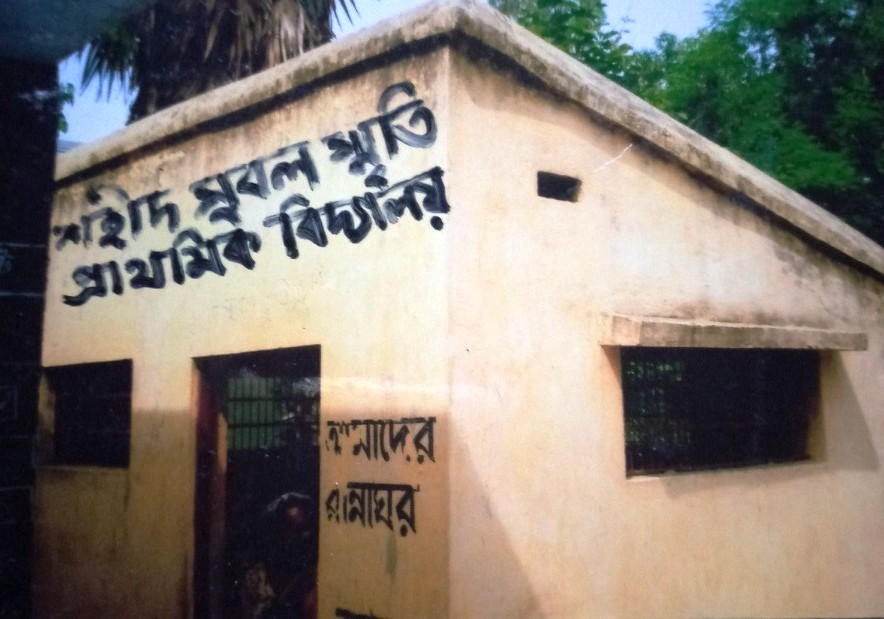 শহীদ সুবল স্মৃতি
প্রাথমিক বিদ্যালয়
আমাদের
রান্নাঘর